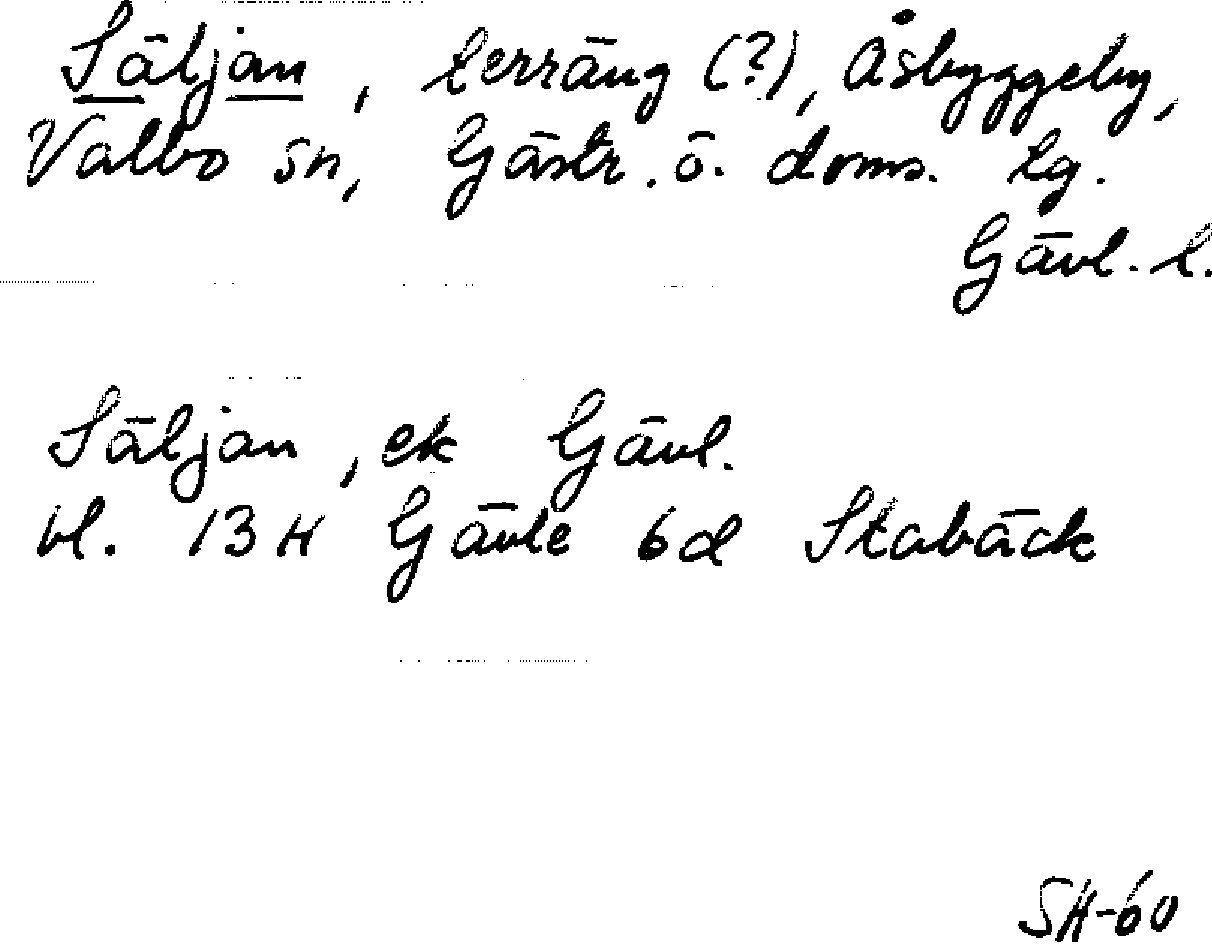 Säljan, terräng (?), Åsbyggeby,
Valbo sn, Gästr. ö. doms. tg.
Gävl. l.
Säljan, ek Gävl.
bl. 13 H Gävle 6d Stabäck
SH-60